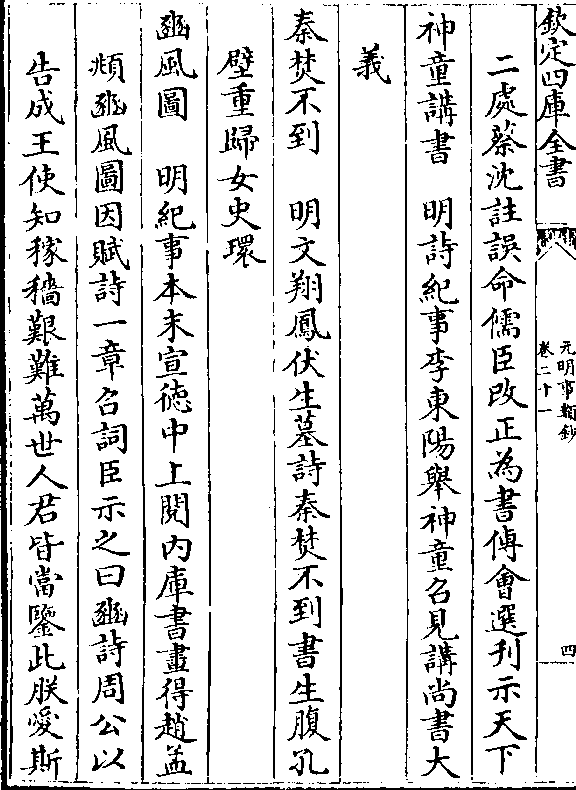 欽定四庫全書
元明事類鈔
卷二十一
四
二處蔡沈註誤命儒臣改正為書傳會選刋示天下
神童講書　明詩紀事李東陽舉神童召見講尚書大
義
秦焚不到　明文翔鳳伏生墓詩秦焚不到書生腹孔
壁重歸女史環
豳風圖　明紀事本末宣德中上閱内庫書畫得趙孟
頫豳風圖因賦詩一章召詞臣示之曰豳詩周公以
告成王使知稼穡艱難萬世人君皆當鑒此朕愛斯